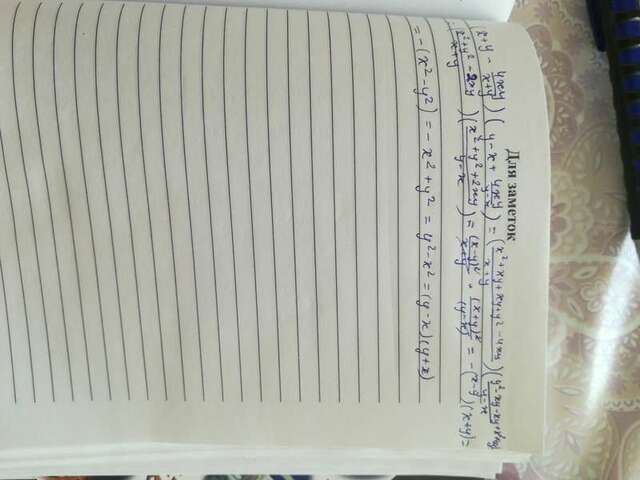 Для заметок
(x+y - 4xy/(x+y)) (y-x + 4xy/(y-x)) = ((x²+xy+xy+y²-4xy)/(x+y)) (
((x²+y²-2xy)/(x+y)) ((x²+y²+2xy)/(y-x)) = (x-y)²/(x+y) · (x+y)²/(y-x) = -(x-y)(x+y) =
= -(x²-y²) = -x²+y² = y²-x² = (y-x)(y+x)